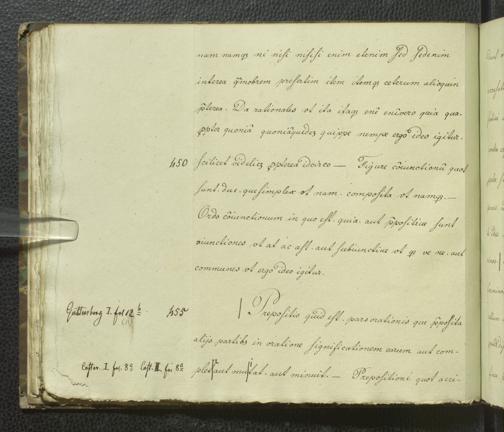 nam namq; ni nisi nisisi enim etenim sed sedenim
interea q̄mobrem presertim item itemq; ceterum alioquin
p̄terea. Da rationales vt ita itaq; enī enīvero quia qua-
propter quoniā quoniāquidez quippe nempe ergo ideo igitur.
450 scilicet videlicz propterea idcirco — Figure cōiunctionū quot
sunt. due. que simplex vt nam. composita vt namq;. —
Ordo cōiunctionum in quo est. quia. aut p̄positive sunt
cōiunctiones vt at ac ast. aut subiunctive vt q; ve ne. aut
communes vt ergo ideo igitur.
Guttenberg I. fol 12 b
455 Prepositio quid est. pars orationis que p̄posita
alijs partibus in oratione significationem earum aut com-
Coster. I. fol. 8a Cost. II. fol 8a
plet aut mutat. aut minuit. — Prepositioni quot acci-